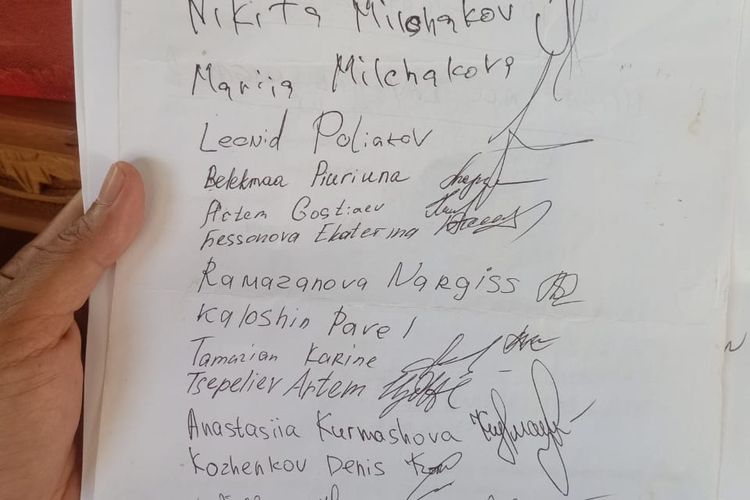 Nikita Milchakov
Mariia Milchakova
Leonid Poliakov
Belekmaa Piuriuna
Artem Gostiaev
Bessonova Ekaterina
Ramazanova Nargiss
Kaloshin Pavel
Tamazian Karine
Tsepeliev Artem
Anastasiia Kurmashova
Kozhenkov Denis